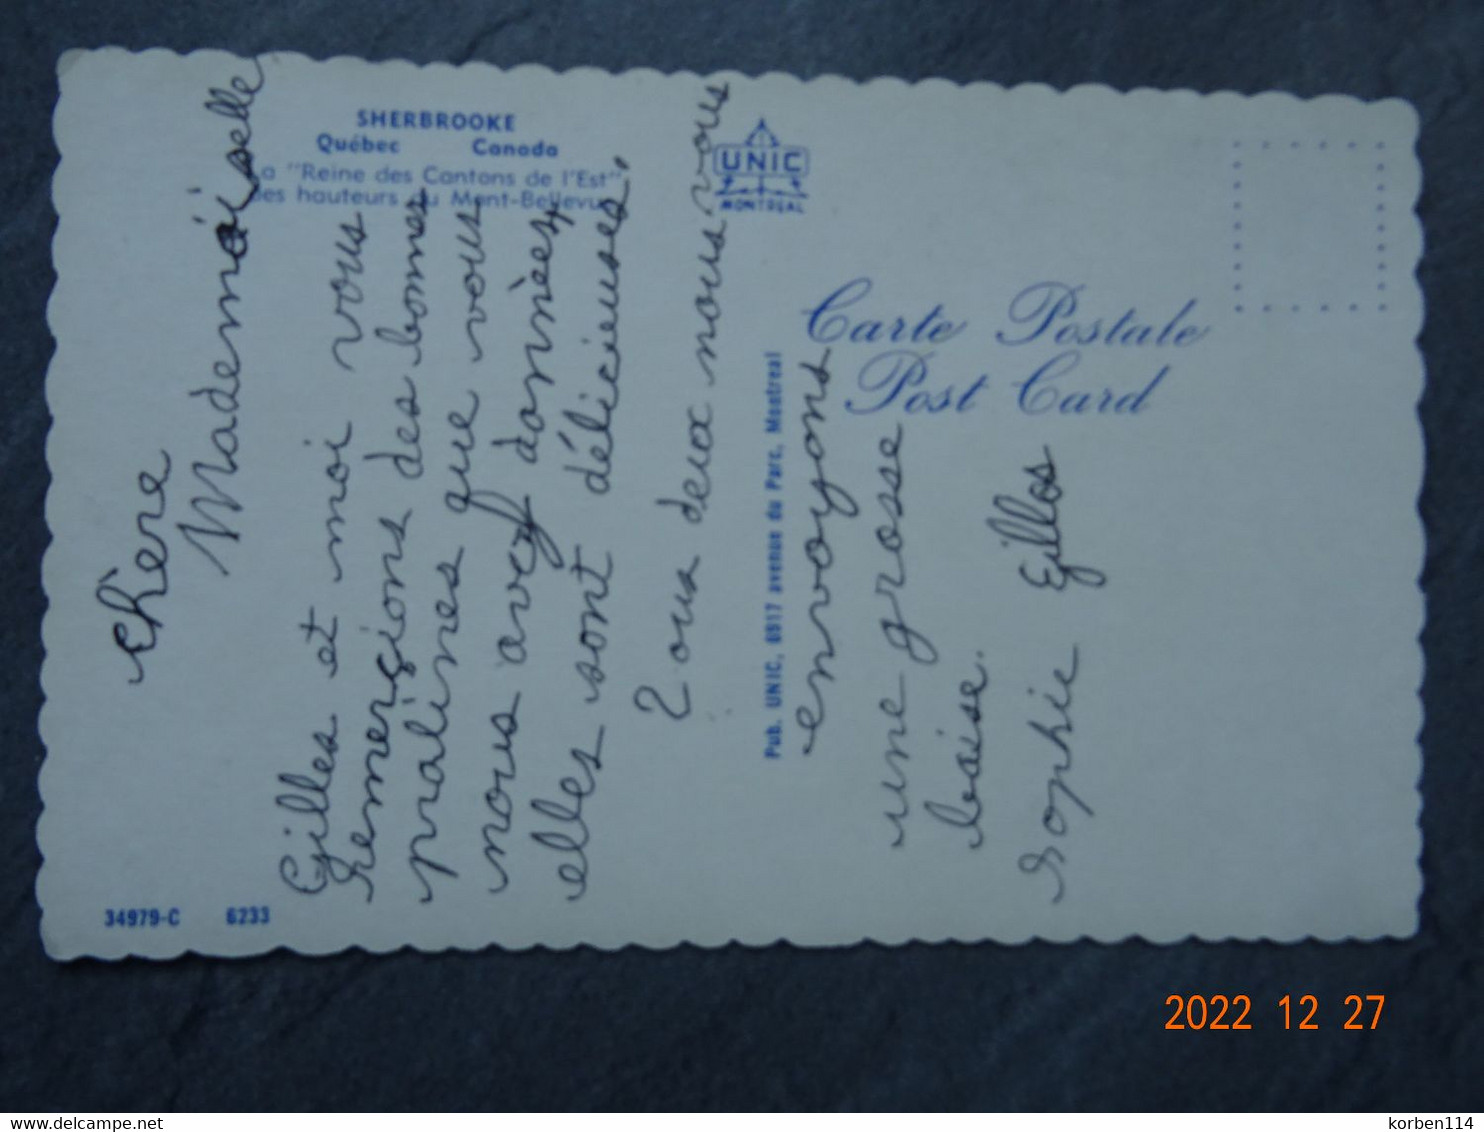 SHERBROOKE
Québec Canada
La "Reine des Cantons de l'Est"
des hauteurs du Mont-Bellevue
UNIC
MONTREAL
Carte Postale
Post Card
Pub. UNIC, 6917 avenue du Parc, Montreal
34979-C 6233
Chère
Mademoiselle
Gilles et moi vous
remerçions des bonnes
pralines que vous
nous avez donnèes,
elles sont délicieuses.
2 ous deux nous vous
envoyons
une grosse
baise.
Sophie Gillos
2022 12 27
delcampe.net
korben114